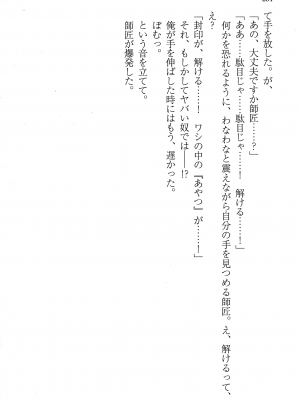 て手を放した。が、
「あの、大丈夫ですか師匠……？」
「ああ……駄目じゃ……駄目じゃ……！　解ける……！」
何かを恐れるように、わなわなと震えながら自分の手を見つめる師匠。え、解けるって、
え？
「封印が、解ける……！　ワシの中の『あやつ』が……！」
それ、もしかしてヤバい奴では――!?
俺が手を伸ばした時にはもう、遅かった。
ぽむっ。
という音を立てて。
師匠が爆発した。